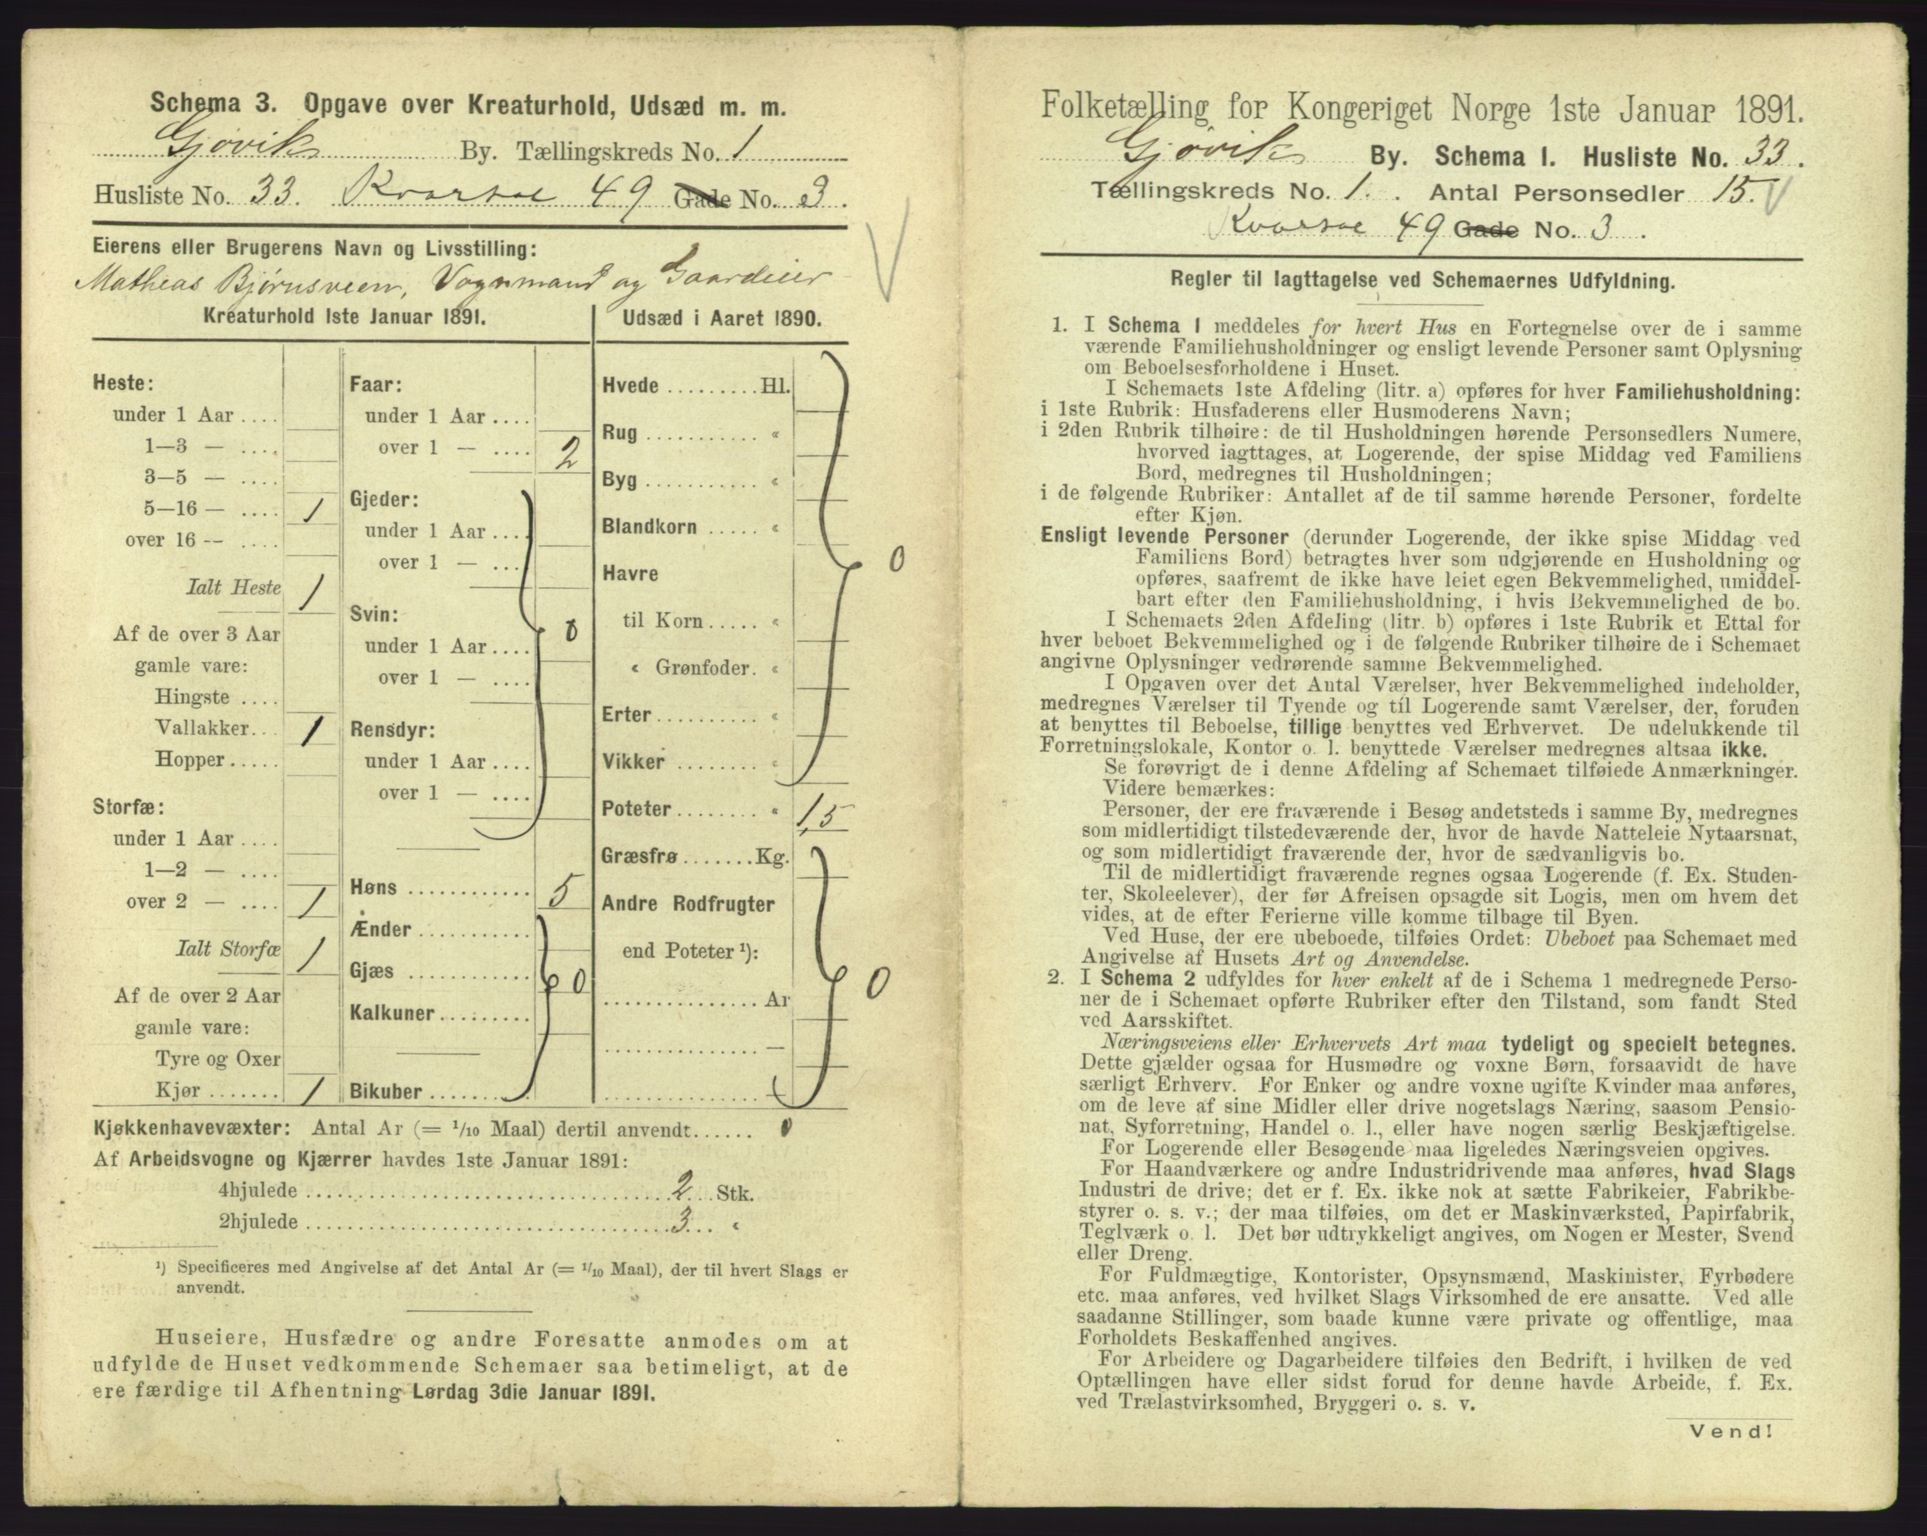 Schema 3. Opgave over Kreaturhold, Udsæd m. m.
Gjøvik By. Tællingskreds No. 1
Husliste No. 33. Kvartal 49 Gade No. 3.
Eierens eller Brugerens Navn og Livsstilling:
Matheas Bjørnsveen, Vognmand og Gaardeier
Kreaturhold 1ste Januar 1891.
Heste:
under 1 Aar ....
1—3 — ....
3—5 — ....
5—16 — .... 1
over 16 — ....
Ialt Heste 1
Af de over 3 Aar
gamle vare:
Hingste ....
Vallakker... 1
Hopper.....
Storfæ:
under 1 Aar ....
1—2 — ....
over 2 — .... 1
Ialt Storfæ 1
Af de over 2 Aar
gamle vare:
Tyre og Oxer
Kjør ....... 1
Faar:
under 1 Aar ....
over 1 — .... 2
Gjeder:
under 1 Aar....
over 1 — ....
Svin: 0
under 1 Aar....
over 1 — ....
Rensdyr:
under 1 Aar....
over 1 — ....
Høns ............ 5
Ænder ...........
Gjæs ............ 0
Kalkuner.........
Bikuber .........
Udsæd i Aaret 1890.
Hvede ......... Hl.
Rug ........... «
Byg ........... «
Blandkorn ..... « 0
Havre
til Korn ..... «
« Grønfoder. «
Erter.......... «
Vikker ........ «
Poteter........ « 1,5
Græsfrø....... Kg.
Andre Rodfrugter
end Poteter ¹): 0
............... Ar
............... —
............... —
Kjøkkenhavevæxter: Antal Ar (= 1/10 Maal) dertil anvendt...... 0
Af Arbeidsvogne og Kjærrer havdes 1ste Januar 1891:
4hjulede .................................... 2 ... Stk.
2hjulede .................................... 3 ... «
¹) Specificeres med Angivelse af det Antal Ar (= 1/10 Maal), der til hvert Slags er
anvendt.
Huseiere, Husfædre og andre Foresatte anmodes om at
udfylde de Huset vedkommende Schemaer saa betimeligt, at de
ere færdige til Afhentning Lørdag 3die Januar 1891.
Folketælling for Kongeriget Norge 1ste Januar 1891.
Gjøvik By. Schema 1. Husliste No. 33.
Tællingskreds No. 1. Antal Personsedler 15.
Kvartal 49 Gade No. 3.
Regler til Iagttagelse ved Schemaernes Udfyldning.
1. I Schema 1 meddeles for hvert Hus en Fortegnelse over de i samme
værende Familiehusholdninger og ensligt levende Personer samt Oplysning
om Beboelsesforholdene i Huset.
I Schemaets 1ste Afdeling (litr. a) opføres for hver Familiehusholdning:
i 1ste Rubrik: Husfaderens eller Husmoderens Navn;
i 2den Rubrik tilhøire: de til Husholdningen hørende Personsedlers Numere,
hvorved iagttages, at Logerende, der spise Middag ved Familiens
Bord, medregnes til Husholdningen;
i de følgende Rubriker: Antallet af de til samme hørende Personer, fordelte
efter Kjøn.
Ensligt levende Personer (derunder Logerende, der ikke spise Middag ved
Familiens Bord) betragtes hver som udgjørende en Husholdning og
opføres, saafremt de ikke have leiet egen Bekvemmelighed, umiddel-
bart efter den Familiehusholdning, i hvis Bekvemmelighed de bo.
I Schemaets 2den Afdeling (litr. b) opføres i 1ste Rubrik et Ettal for
hver beboet Bekvemmelighed og i de følgende Rubriker tilhøire de i Schemaet
angivne Oplysninger vedrørende samme Bekvemmelighed.
I Opgaven over det Antal Værelser, hver Bekvemmelighed indeholder,
medregnes Værelser til Tyende og til Logerende samt Værelser, der, foruden
at benyttes til Beboelse, tillige benyttes ved Erhvervet. De udelukkende til
Forretningslokale, Kontor o. l. benyttede Værelser medregnes altsaa ikke.
Se forøvrigt de i denne Afdeling af Schemaet tilføiede Anmærkninger.
Videre bemærkes:
Personer, der ere fraværende i Besøg andetsteds i samme By, medregnes
som midlertidigt tilstedeværende der, hvor de havde Natteleie Nytaarsnat,
og som midlertidigt fraværende der, hvor de sædvanligvis bo.
Til de midlertidigt fraværende regnes ogsaa Logerende (f. Ex. Studen-
ter, Skoleelever), der før Afreisen opsagde sit Logis, men om hvem det
vides, at de efter Ferierne ville komme tilbage til Byen.
Ved Huse, der ere ubeboede, tilføies Ordet: Ubeboet paa Schemaet med
Angivelse af Husets Art og Anvendelse.
2. I Schema 2 udfyldes for hver enkelt af de i Schema 1 medregnede Perso-
ner de i Schemaet opførte Rubriker efter den Tilstand, som fandt Sted
ved Aarsskiftet.
Næringsveiens eller Erhvervets Art maa tydeligt og specielt betegnes.
Dette gjælder ogsaa for Husmødre og voxne Børn, forsaavidt de have
særligt Erhverv. For Enker og andre voxne ugifte Kvinder maa anføres,
om de leve af sine Midler eller drive nogetslags Næring, saasom Pensio-
nat, Syforretning, Handel o. l., eller have nogen særlig Beskjæftigelse.
For Logerende eller Besøgende maa ligeledes Næringsveien opgives.
For Haandværkere og andre Industridrivende maa anføres, hvad Slags
Industri de drive; det er f. Ex. ikke nok at sætte Fabrikeier, Fabrikbe-
styrer o. s. v.; der maa tilføies, om det er Maskinværksted, Papirfabrik,
Teglværk o. l. Det bør udtrykkeligt angives, om Nogen er Mester, Svend
eller Dreng.
For Fuldmægtige, Kontorister, Opsynsmænd, Maskinister, Fyrbødere
etc. maa anføres, ved hvilket Slags Virksomhed de ere ansatte. Ved alle
saadanne Stillinger, som baade kunne være private og offentlige, maa
Forholdets Beskaffenhed angives.
For Arbeidere og Dagarbeidere tilføies den Bedrift, i hvilken de ved
Optællingen have eller sidst forud for denne havde Arbeide, f. Ex.
ved Trælastvirksomhed, Bryggeri o. s. v.
Vend!